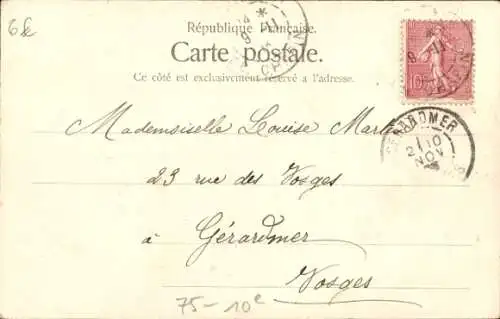 6
République Française.
Carte postale.
Ce côté est exclusivement réservé à l'adresse.
10
GÉRARDMER
10
NOV
Mademoiselle Louise Martin
23 rue des Vosges
à Gérardmer
Vosges
75-10e